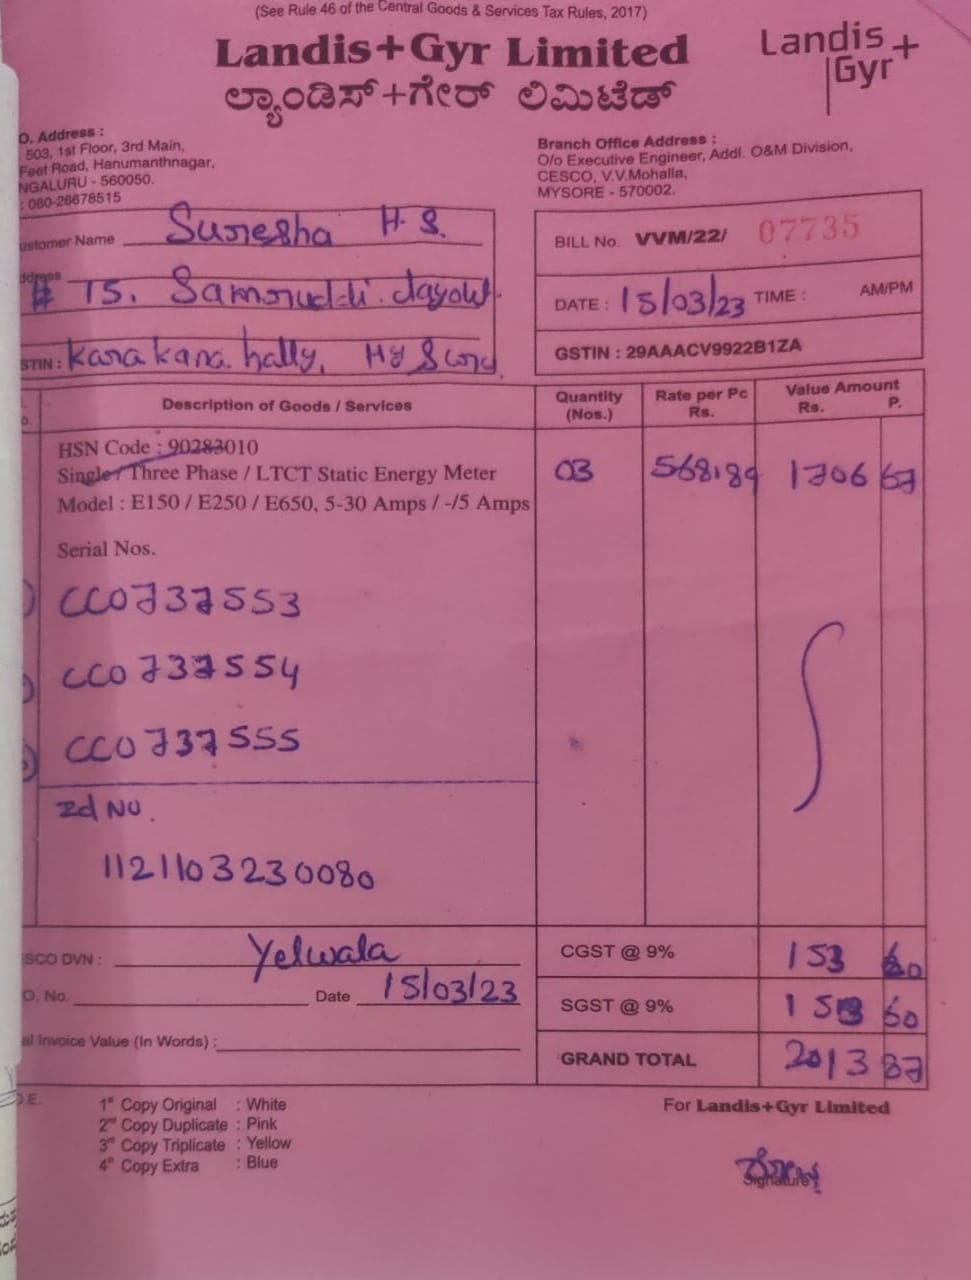 (See Rule 46 of the Central Goods & Services Tax Rules, 2017)
Landis+Gyr Limited
ಲ್ಯಾಂಡಿಸ್+ಗೇರ್ ಲಿಮಿಟೆಡ್
Landis
Gyr+
O. Address :
503, 1st Floor, 3rd Main,
Feet Road, Hanumanthnagar,
NGALURU - 560050.
: 080-26678515
Branch Office Address :
O/o Executive Engineer, Addl. O&M Division,
CESCO, V.V.Mohalla,
MYSORE - 570002.
ustomer Name Suresha H.S.
ddress
# 75, Samruddi
STIN : karakanahally,
BILL No. VVM/22/ 07735
DATE : 15/03/23 TIME : AM/PM
GSTIN : 29AAACV9922B1ZA
Description of Goods / Services
Quantity (Nos.)
Rate per Pc Rs.
Value Amount Rs. P.
HSN Code : 90283010
Single / Three Phase / LTCT Static Energy Meter 03 568.89 1706 67
Model : E150 / E250 / E650, 5-30 Amps / -/5 Amps
Serial Nos.
CC0737553
CC0737554
CC0737555
Id No.
1121103230080
SCO DVN : Yelwala
O. No. Date 15/03/23
al Invoice Value (In Words) :
CGST @ 9% 153 60
SGST @ 9% 153 60
GRAND TOTAL 2013 87
O.E.
1st Copy Original : White
2nd Copy Duplicate : Pink
3rd Copy Triplicate : Yellow
4th Copy Extra : Blue
For Landis+Gyr Limited
Signature